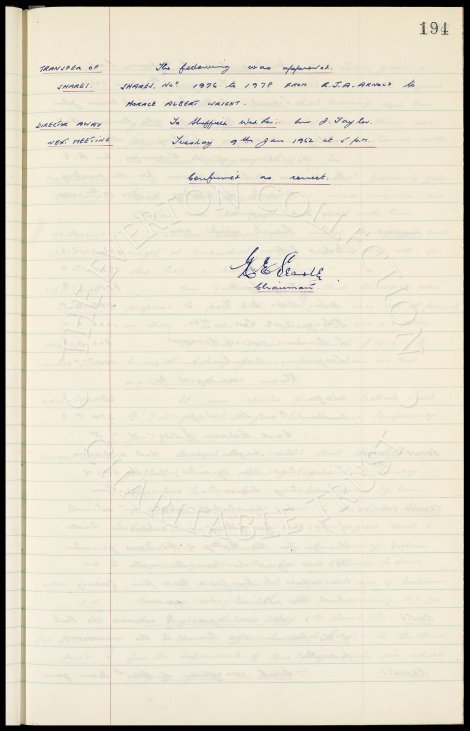 194
TRANSFER OF The following was approved.
SHARES. SHARES. Nos 1976 to 1978 FROM R.J.A. ARNOLD to
HORACE ALBERT WRIGHT.
DIRECTOR AWAY To Sheffield Wed Res: Mr J. Taylor.
NEXT MEETING Tuesday 9th Jan 1962 at 5 p.m.
Confirmed as correct.
Chairman
THE EVERTON COLLECTION
CHARITABLE TRUST